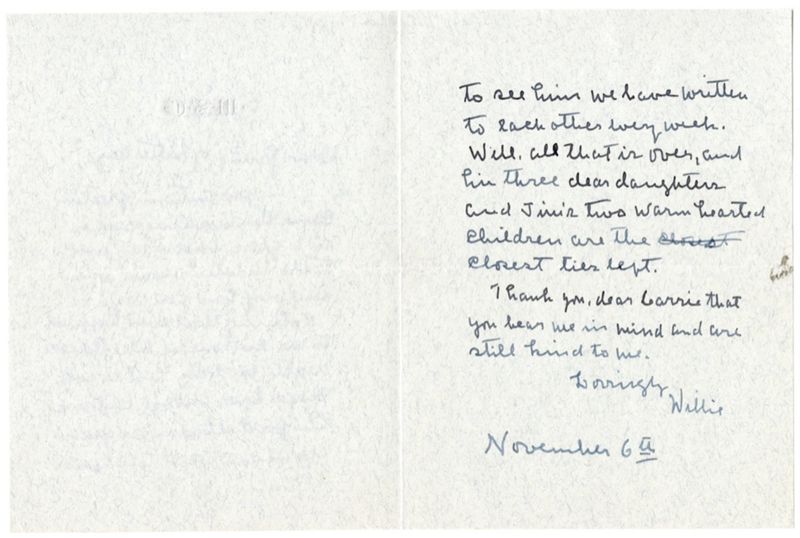 to see him we have written
to each other every week.
Well, all that is over, and
his three dear daughters
and Jim's two warm hearted
children are the closest
closest ties left.
Thank you, dear Carrie that
you bear me in mind and are
still kind to me.
Lovingly
Willie
November 6th